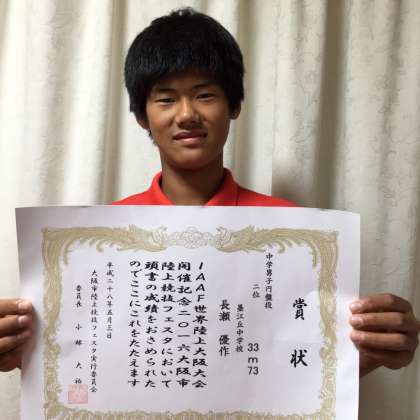 賞状
中学男子円盤投
二位
33m73
墨江丘中学校
長瀬 優作
IAAF世界陸上大阪大会
開催記念二〇一六大阪市
陸上競技フェスタにおいて
頭書の成績をおさめられた
のでここにこれをたたえます
平成二十八年五月三日
大阪市陸上競技フェスタ実行委員会
委員長 小林 大祐